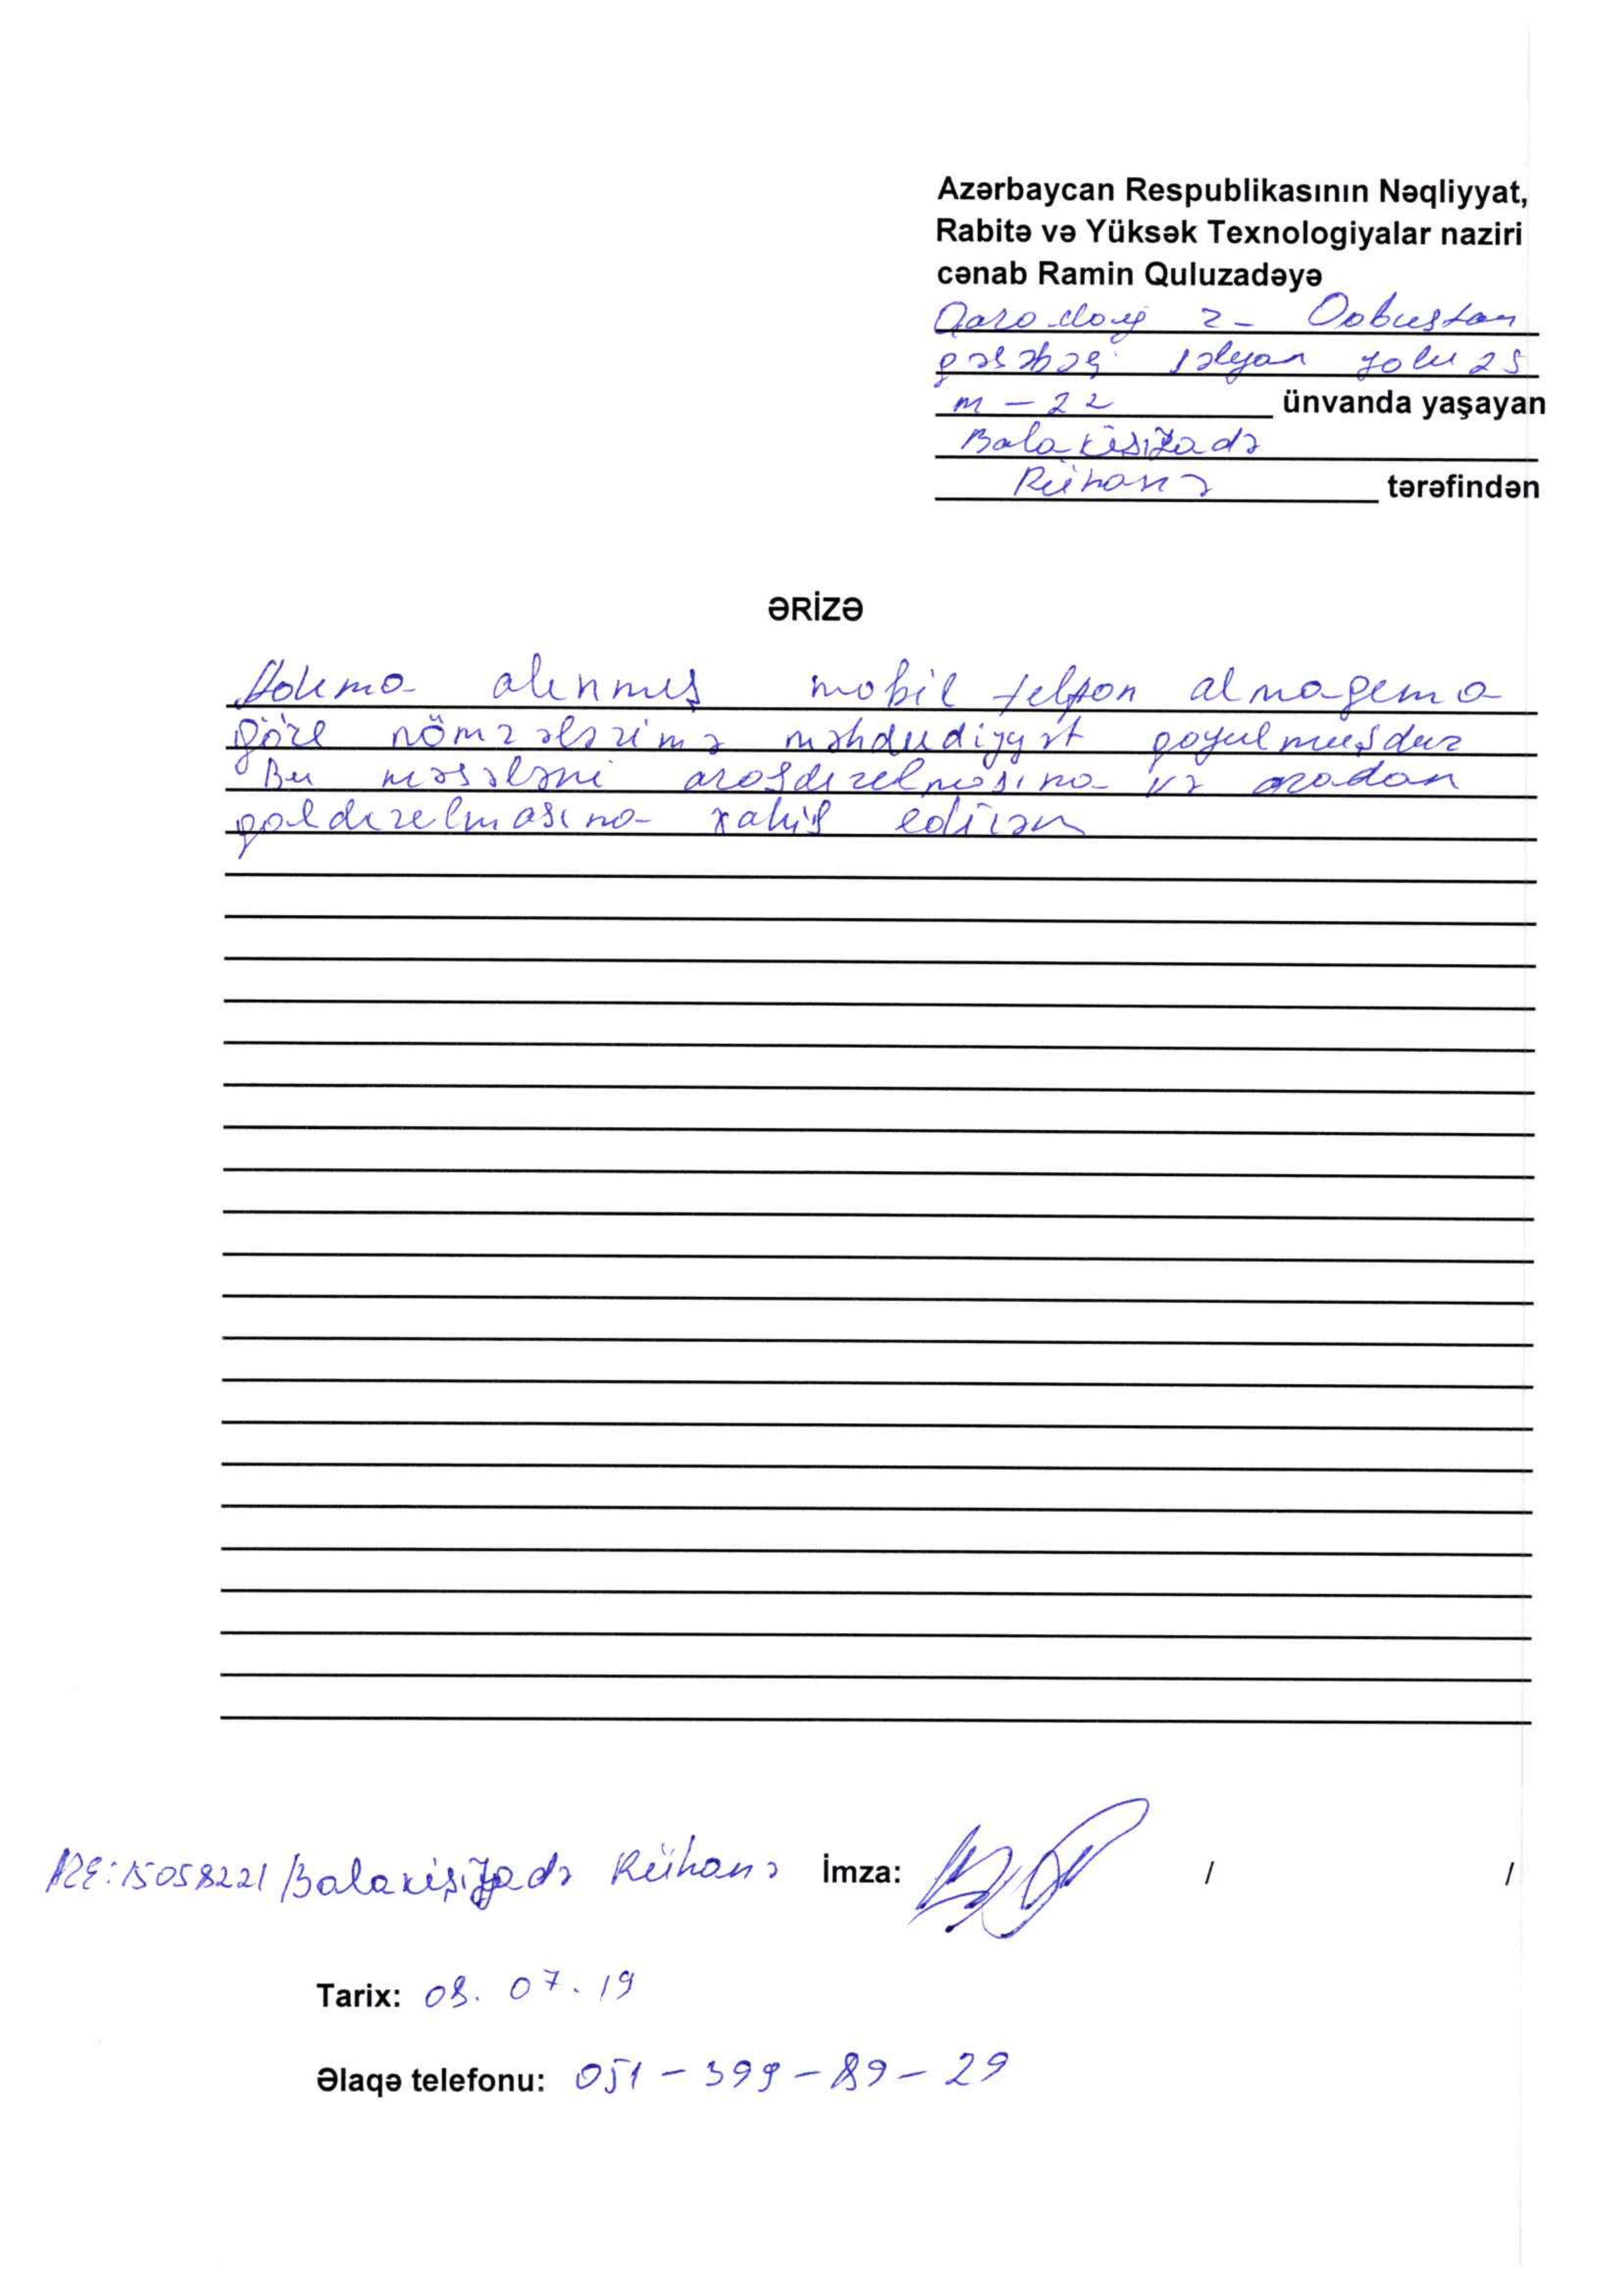 Azərbaycan Respublikasının Nəqliyyat,
Rabitə və Yüksək Texnologiyalar naziri
cənab Ramin Quluzadəyə
Qaradağ r- Qobustan
qəsəbəsi Səlyan yolu 25
m - 22 ünvanda yaşayan
Balakişizadə
Rühanə tərəfindən
ƏRİZƏ
alınmış mobil telfon almağıma
göre nömrələrimə məhdudiyyət qoyulmuşdur
Bu məsələni araşdırılmasına və aradan
qaldırılmasına xahiş edirəm
AZE:15058221 Balakişizadə Rühanə İmza: / /
Tarix: 08.07.19
Əlaqə telefonu: 051-399-89-29